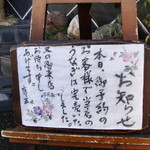 お知らせ
本日御予約の
お客様で当店の
うなぎは完売いた
しました。
又の御来店
お待ち申し
あげます。